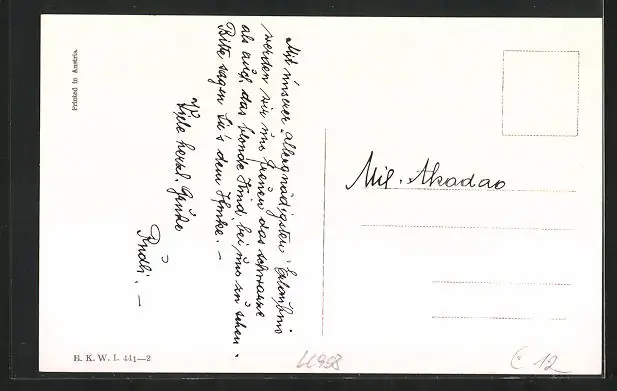 Mit unserer allergnädigsten Erlaubnis
werden wir uns freuen das schwarze
als auch das blonde Kind, bei uns zu sehen.
Bitte sagen Sie's dem Henke. —
Viele herzl. Grüße
Rudhi. —
Printed in Austria.
B. K. W. I. 441—2
Mil. Akadao
€ 12